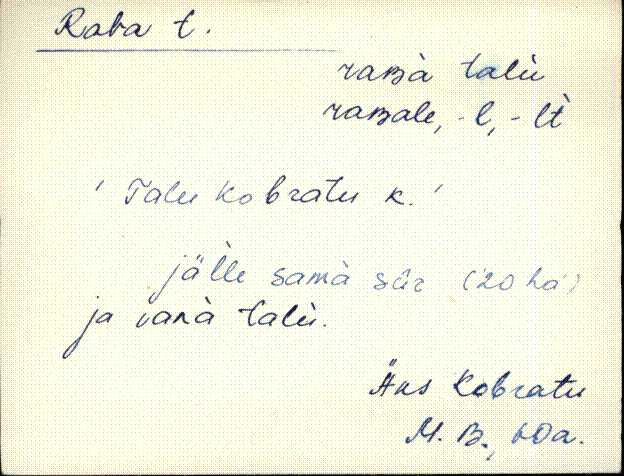 Raba t.
raʙà talù
raʙale, -l, -lt
' Talu Kobratu k. '
jälle samà sûr (20 ha)
ja vanà talù.
Äks Kobratu
M. B., 60a.